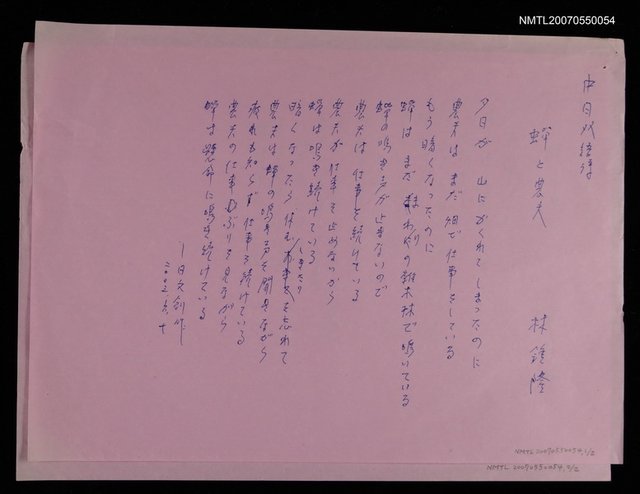 NMTL20070550054
中日双語詩
蟬と農夫
林鍾隆
夕日が 山にかくれてしまったのに
農夫は まだ畑で仕事をしている
もう暗くなったのに
蟬は まだ まわりの雑木林で鳴いている
蟬の鳴き声が止まないので
農夫は 仕事を続けている
農夫が仕事を止めないから
蟬は鳴き続けている
暗くなったら 休む しきたりを忘れて
農夫は 蟬の鳴き声を聞きながら
疲れも知らず 仕事を続けている
農夫の仕事ぶりを見ながら
蟬は懸命に鳴き続けている
—日文創作
NMTL20070550054,1/2
NMTL 20070550054,2/2